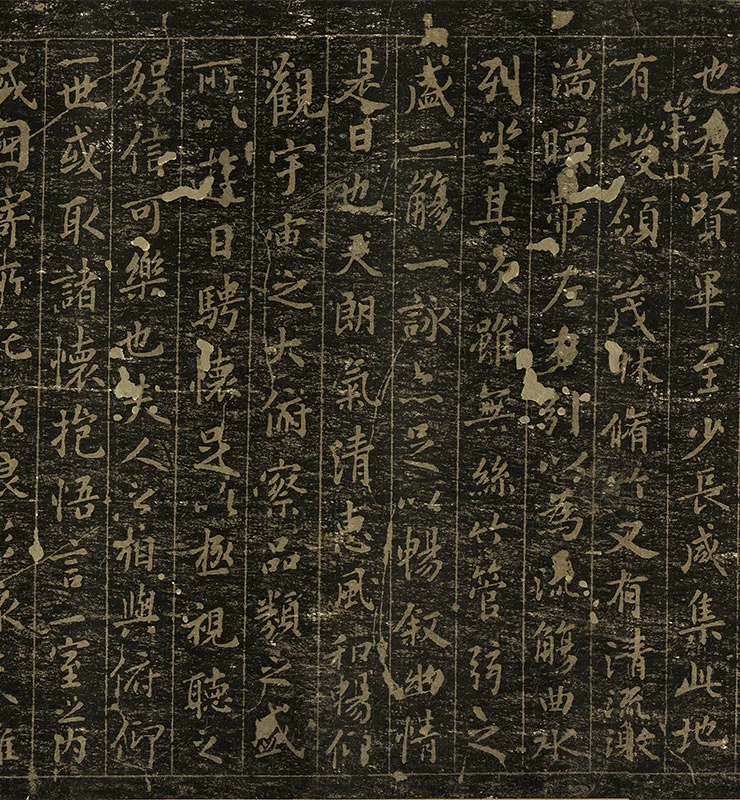 也羣賢畢至少長咸集此地
崇山
有峻領茂林脩竹又有清流激
湍暎帶左右列以為流觴曲水
列坐其次雖無絲竹管弦之
盛一觴一詠亦足以暢叙幽情
是日也天朗氣清惠風和暢仰
觀宇宙之大俯察品類之盛
所以遊目騁懷足以極視聽之
娛信可樂也夫人之相與俯仰
一世或取諸懷抱悟言一室之內
或因寄所託放浪